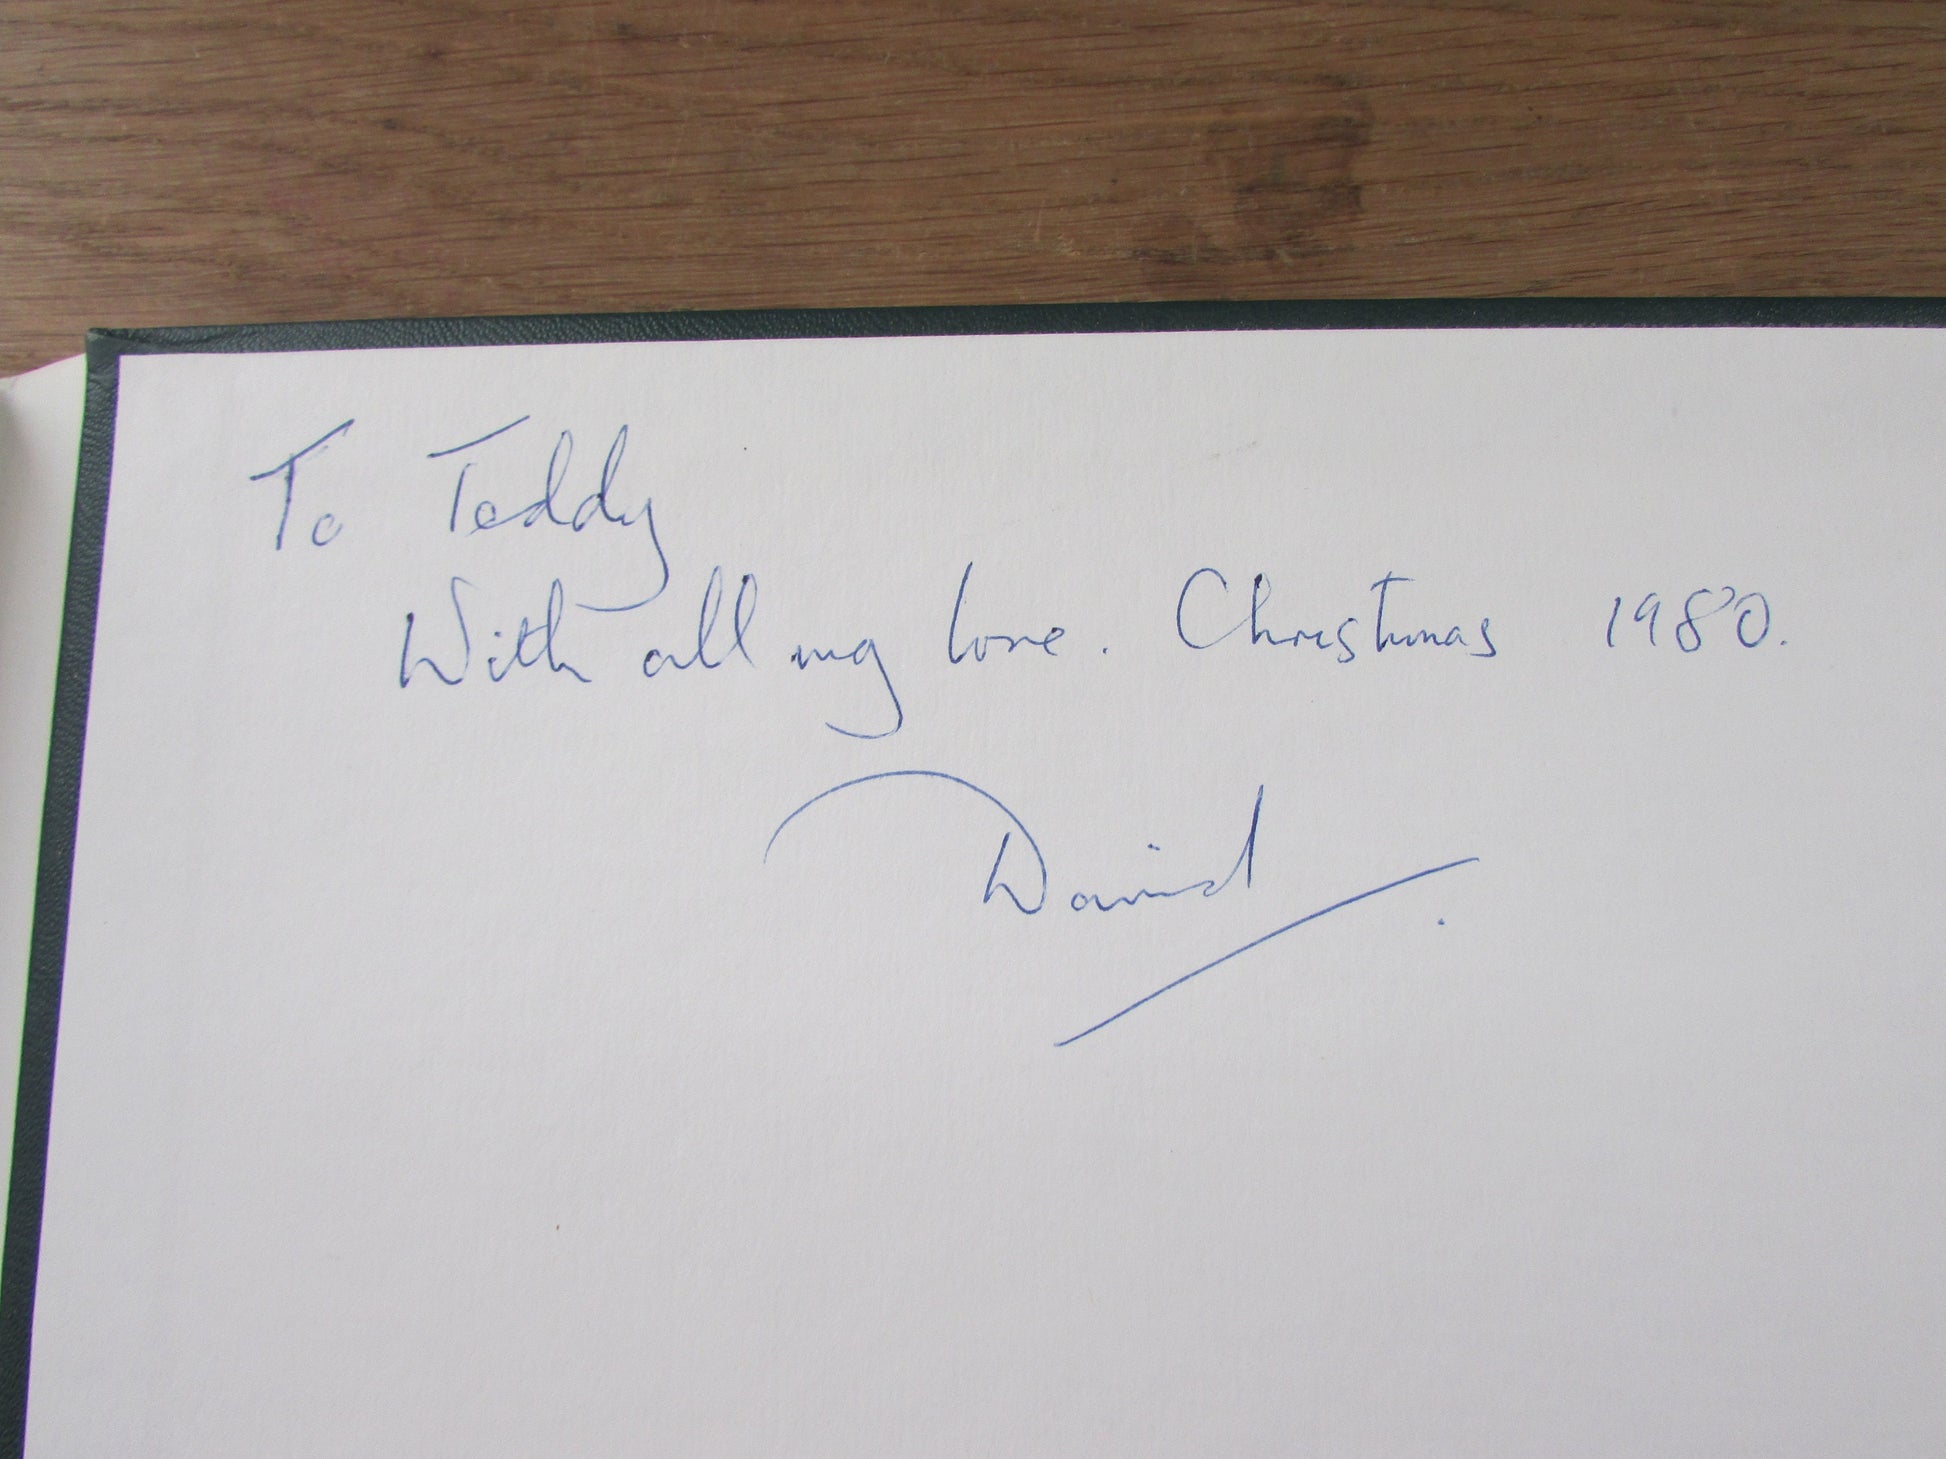 To Teddy
With all my love. Christmas 1980.
David